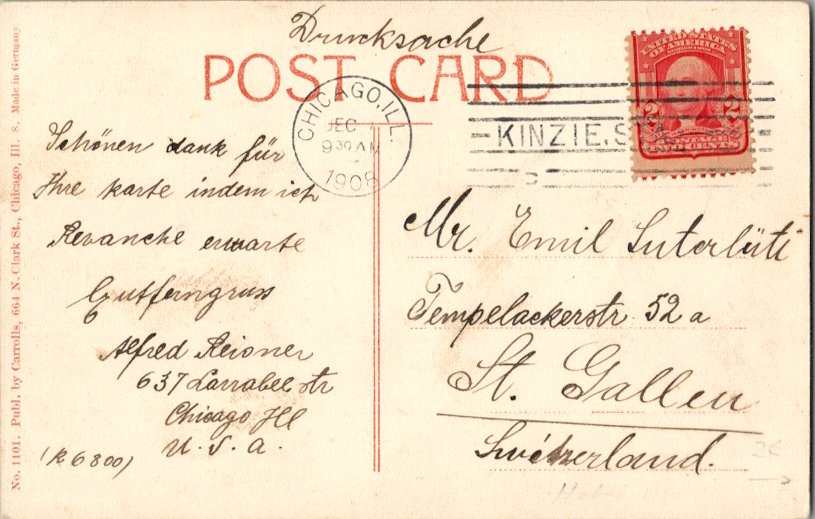 Drucksache
POST CARD
UNITED STATES
OF AMERICA
2 2
CENTS
CHICAGO, ILL.
DEC
9 30 AM
1908
KINZIE.S
Schönen dank für
Ihre karte indem ich
Revanche erwarte
Alfred Reisner
637 Larrabee str
Chicago Ill
U. S. a.
(K 6800)
Mr. Emil Suterlüti
Tempelackerstr 52 a
St. Gallen
Switzerland.
No. 1101. Publ. by Carrolls, 664 N. Clark St., Chicago, Ill. S. Made in Germany.